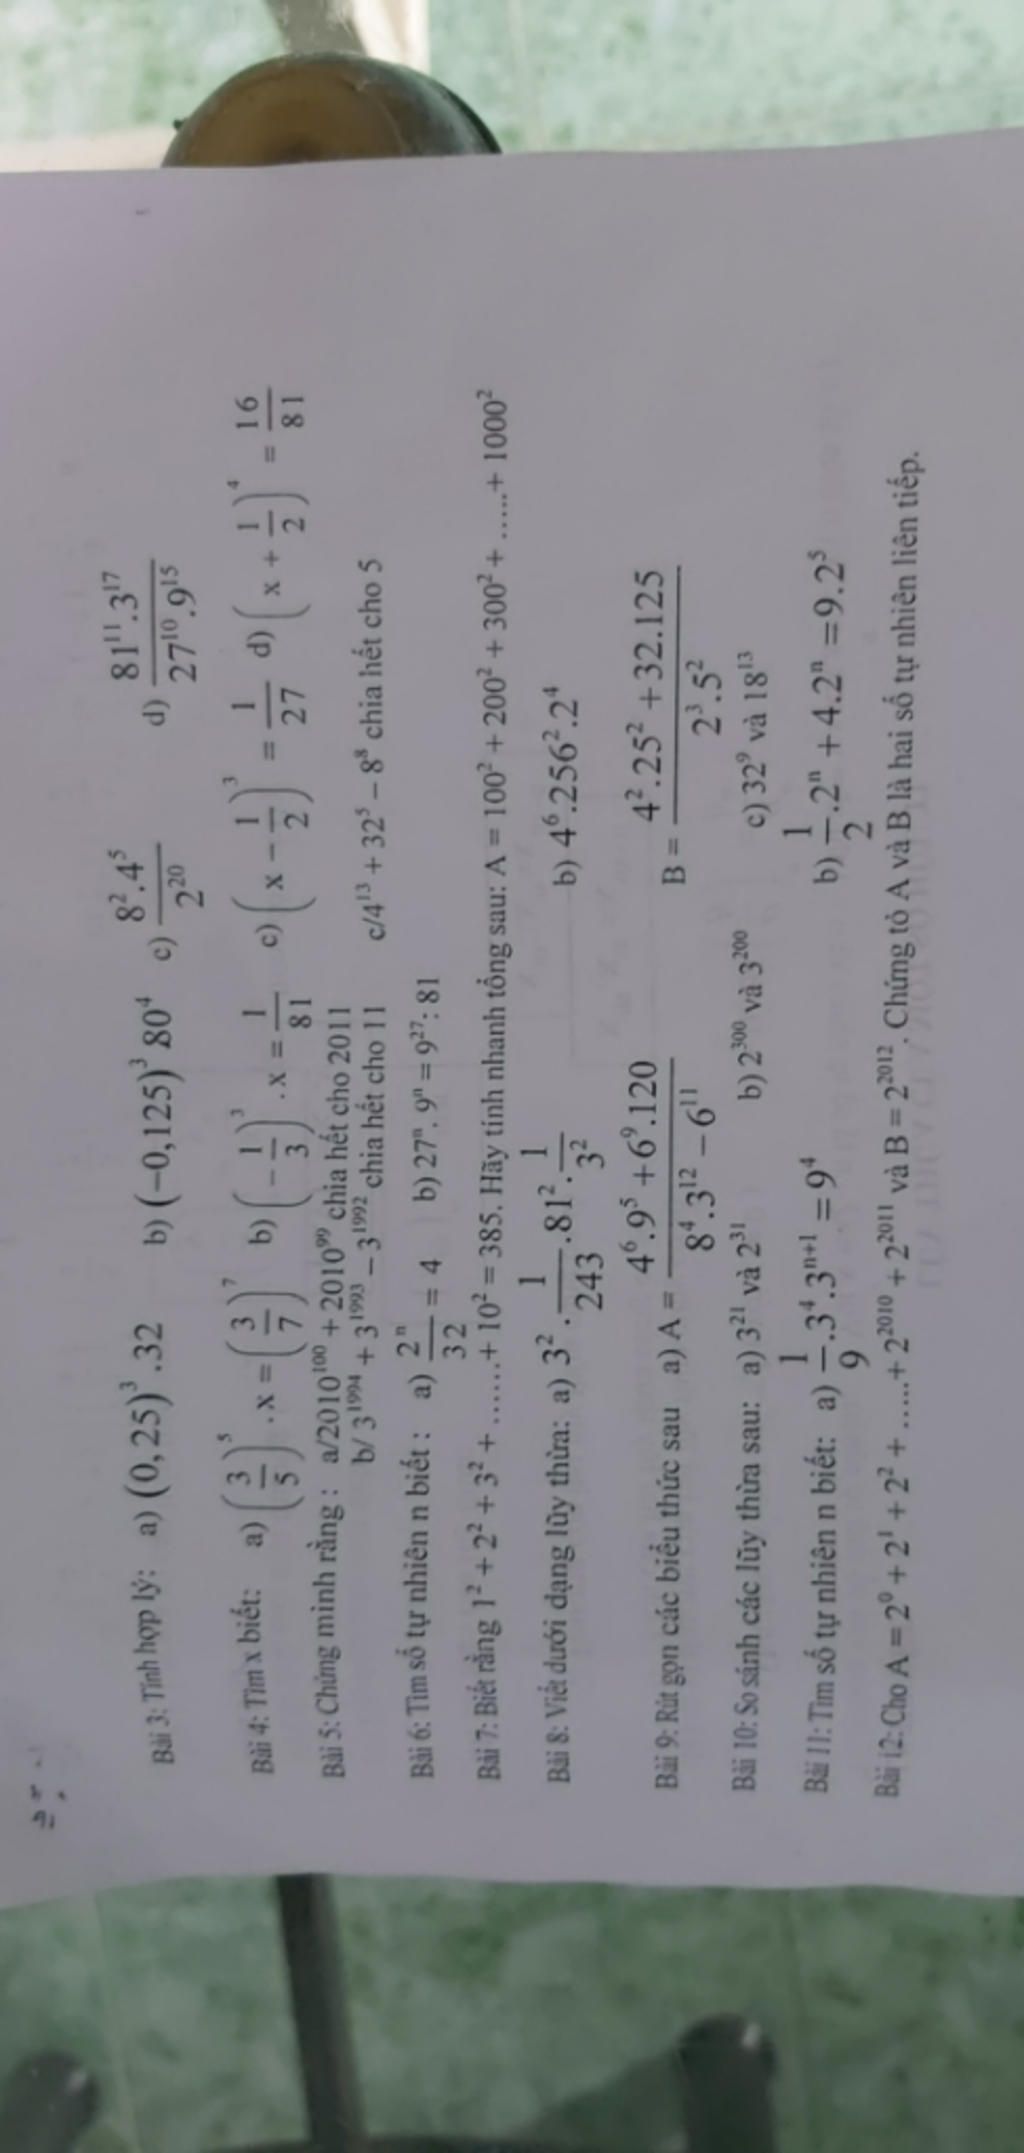 Bài 3: Tính hợp lý: a) (0,25)³.32 b) (−0,125)³.80⁴ c) 8².4⁵/2²⁰ d) 81¹¹.3¹⁷/27¹⁰.9¹⁵
Bài 4: Tìm x biết: a) (3/5)⁵.x = (3/7)⁷ b) (−1/3)³.x = 1/81 c) (x − 1/2)³ = 1/27 d) (x + 1/2)⁴ = 16/81
Bài 5: Chứng minh rằng : a/2010¹⁰⁰ + 2010⁹⁹ chia hết cho 2011
b/ 3¹⁹⁹⁴ + 3¹⁹⁹³ − 3¹⁹⁹² chia hết cho 11 c/4¹³ + 32⁵ − 8⁸ chia hết cho 5
Bài 6: Tìm số tự nhiên n biết : a) 2ⁿ/32 = 4 b) 27ⁿ.9ⁿ = 9²⁷: 81
Bài 7: Biết rằng 1² + 2² + 3² + ......+ 10² = 385. Hãy tính nhanh tổng sau: A = 100² + 200² + 300² + ......+ 1000²
Bài 8: Viết dưới dạng lũy thừa: a) 3².1/243.81².1/3² b) 4⁶.256².2⁴
Bài 9: Rút gọn các biểu thức sau a) A = 4⁶.9⁵ + 6⁹.120/8⁴.3¹² − 6¹¹ B = 4².25² + 32.125/2³.5²
Bài 10: So sánh các lũy thừa sau: a) 3²¹ và 2³¹ b) 2³⁰⁰ và 3²⁰⁰ c) 32⁹ và 18¹³
Bài 11: Tìm số tự nhiên n biết: a) 1/9.3⁴.3ⁿ⁺¹ = 9⁴ b) 1/2.2ⁿ + 4.2ⁿ = 9.2⁵
Bài 12: Cho A = 2⁰ + 2¹ + 2² + .....+ 2²⁰¹⁰ + 2²⁰¹¹ và B = 2²⁰¹². Chứng tỏ A và B là hai số tự nhiên liên tiếp.